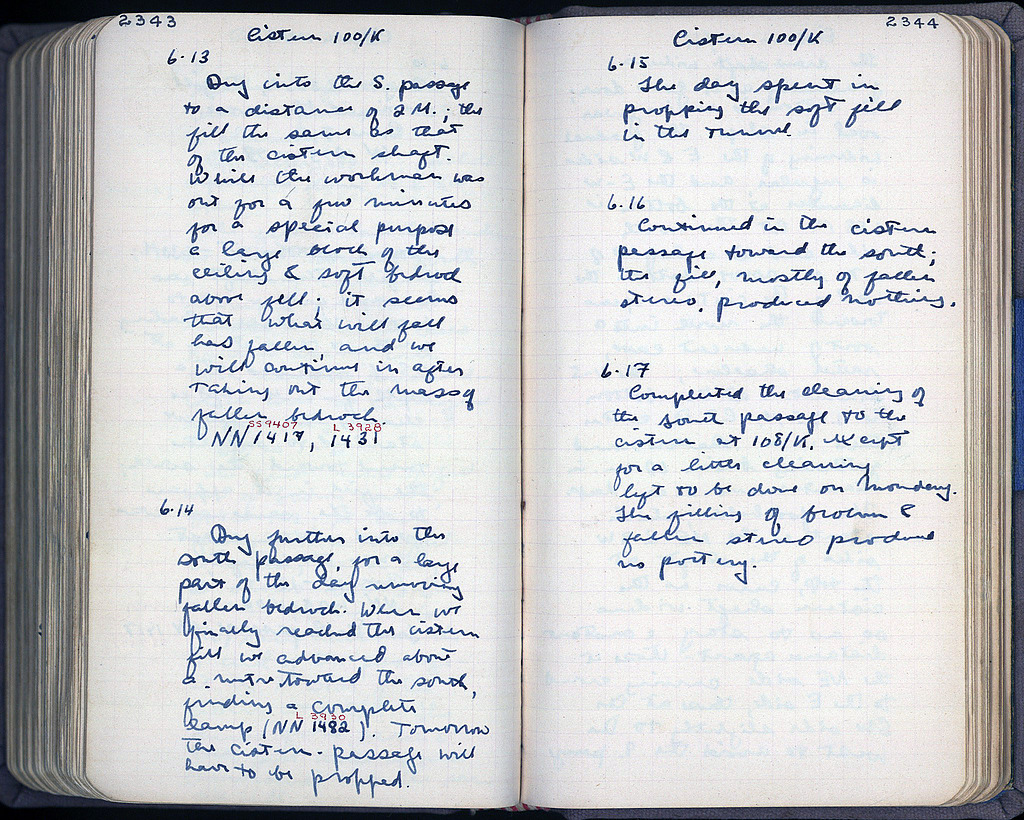 2343
Cistern 100/K
6.13
Dug into the S. passage
to a distance of 2 M.; the
fill the same as that
of the cistern shaft.
While the workman was
out for a few minutes
for a special purpose
a large block of the
ceiling & soft bedrock
above fell; it seems
that what will fall
has fallen, and we
will continue in after
taking out the mass of
fallen bedrock.
SS 9407 L 3928
NN 1417, 1431
6.14
Dug further into the
south passage, for a large
part of the day removing
fallen bedrock. When we
finally reached the cistern
fill we advanced about
a metre toward the south,
finding a complete
L 3930
lamp (NN 1482). Tomorrow
the cistern-passage will
have to be propped.
2344
Cistern 100/K
6.15
The day spent in
propping the soft fill
in the tunnel.
6.16
Continued in the cistern
passage toward the south;
the fill, mostly of fallen
stereo, produced nothing.
6.17
Completed the cleaning of
the south passage to the
cistern at 108/K, except
for a little cleaning
left to be done on Monday.
The filling of brown &
fallen stereo produced
no pottery.